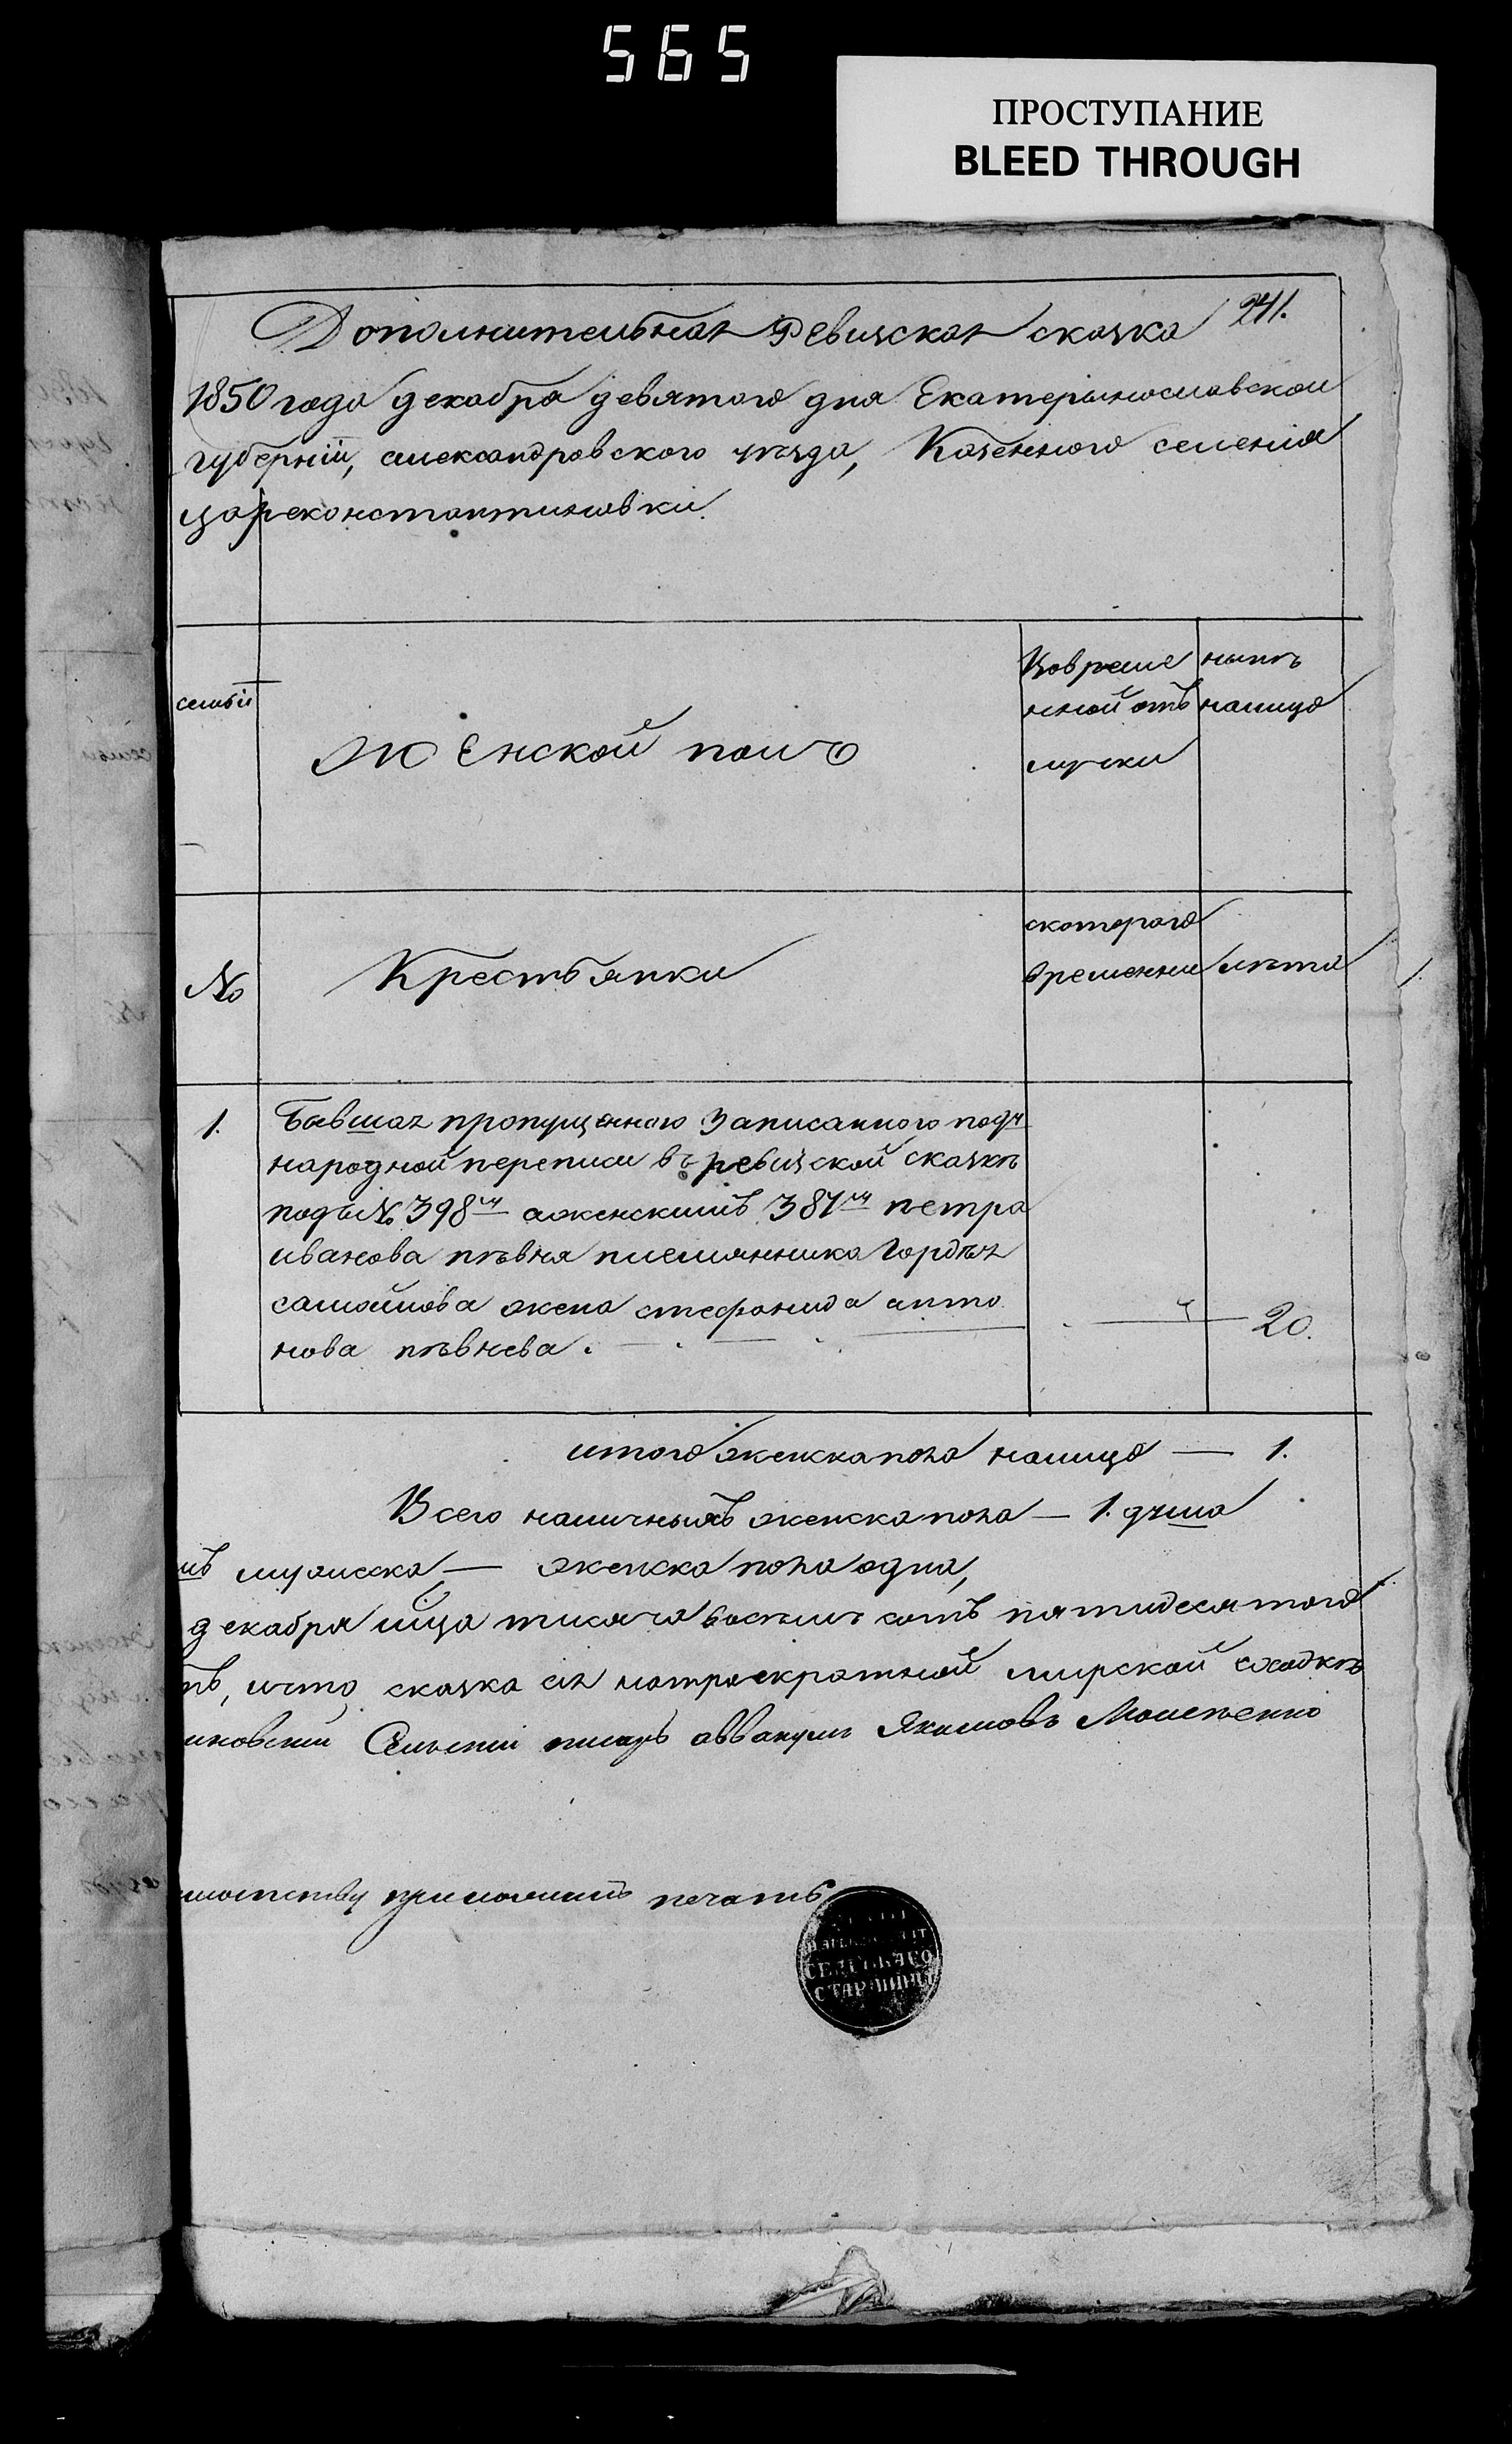 565
ПРОСТУПАНИЕ
BLEED THROUGH
241.
Дополнительная Ревизская сказка
1850 года декабря девятого дня Екатериносла​вской
губерніи, александровского уѣзда, Казенного селенія
цареконстантиновки.
семьи
Женской полъ
Вовреме
нной отъ
лучки
нынѣ
налицо
№
Крестьянки
скоторого
временни
лѣта
1.
Бывшая пропущенною Записанного по 9й
народной переписи въ ревизской сказкѣ
подъ № 398м аженскимъ 387м петра
иванова пѣвня племянника Гордѣя
самойлова жена стефанида анто
нова пѣвнева.
20.
итого женска пола налицо — 1.
Всего наличныхъ женска пола — 1. душа
мужеска — женска пола одна,
декабря мца тисяча восемь сотъ пятидесятого
что сказка сія натроекратной мирской сходкѣ
Сельскій писарь аввакумъ Якимовъ Моисеенко
приложилъ печать
СЕЛЬСКАГО
СТАРШИНЫ